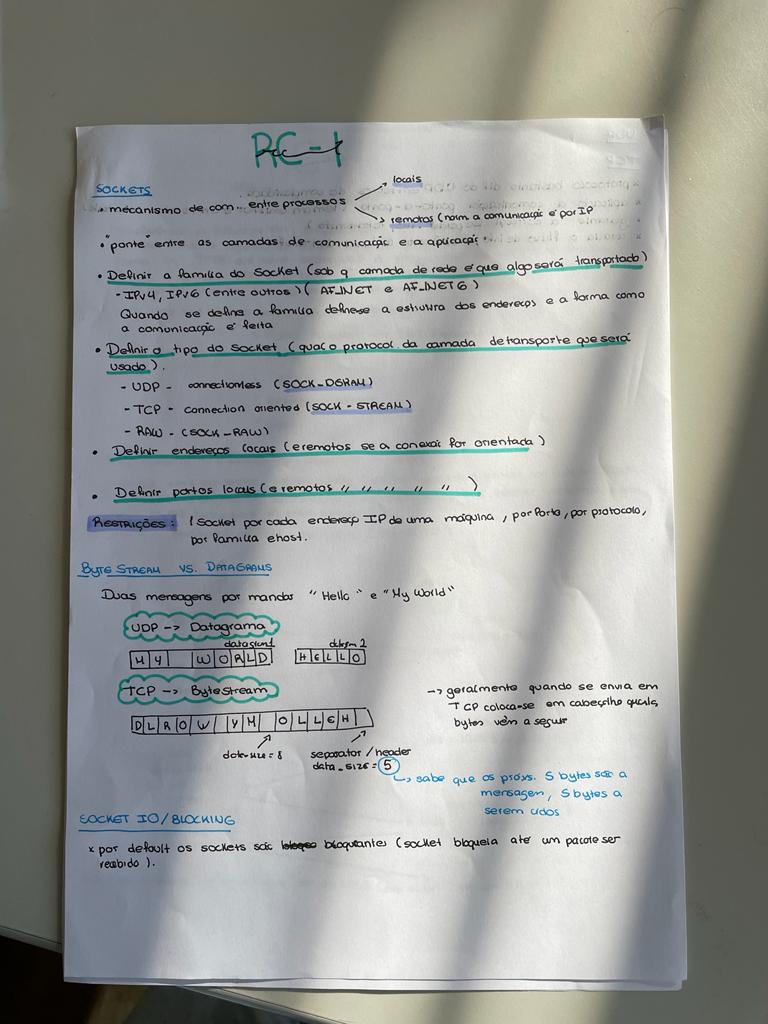 RC-1
SOCKETS
* mecanismo de com.. entre processos
locais
remotos (norm. a comunicação é por IP
• "ponte" entre as camadas de comunicação e a aplicação.
• Definir a família do socket (sob q camada de rede é que algo será transportado)
- IPv4, IPv6 (entre outros) ( AF_INET e AF_INET6 )
Quando se define a família define-se a estrutura dos endereços e a forma como
a comunicação é feita
• Definir o tipo do socket (qual o protocol da camada de transporte que será
usado).
- UDP - connectionless (SOCK_DGRAM)
- TCP - connection oriented (SOCK-STREAM)
- RAW - (SOCK_RAW)
• Definir endereços locais (e remotos se a conexão for orientada)
• Definir portos locais (e remotos " " " " " )
RESTRIÇÕES: 1 socket por cada endereço IP de uma máquina, por Porto, por protocolo,
por família e host.
BYTE STREAM VS. DATAGRAMS
Duas mensagens por mandar "Hello" e "My World"
UDP -> Datagrama
datagram1 datagrm 2
MY WORLD HELLO
TCP -> ByteStream
DLROW YM OLLEH
data-size = 8
separator / header
data_size = 5
-> geralmente quando se envia em
TCP coloca-se em cabeçalho quantos
bytes vêm a seguir
↳ sabe que os próxs. 5 bytes são a
mensagem, 5 bytes a
serem lidos
SOCKET IO/BLOCKING
* por default os sockets são bloqueantes (socket bloqueia até um pacote ser
recebido).